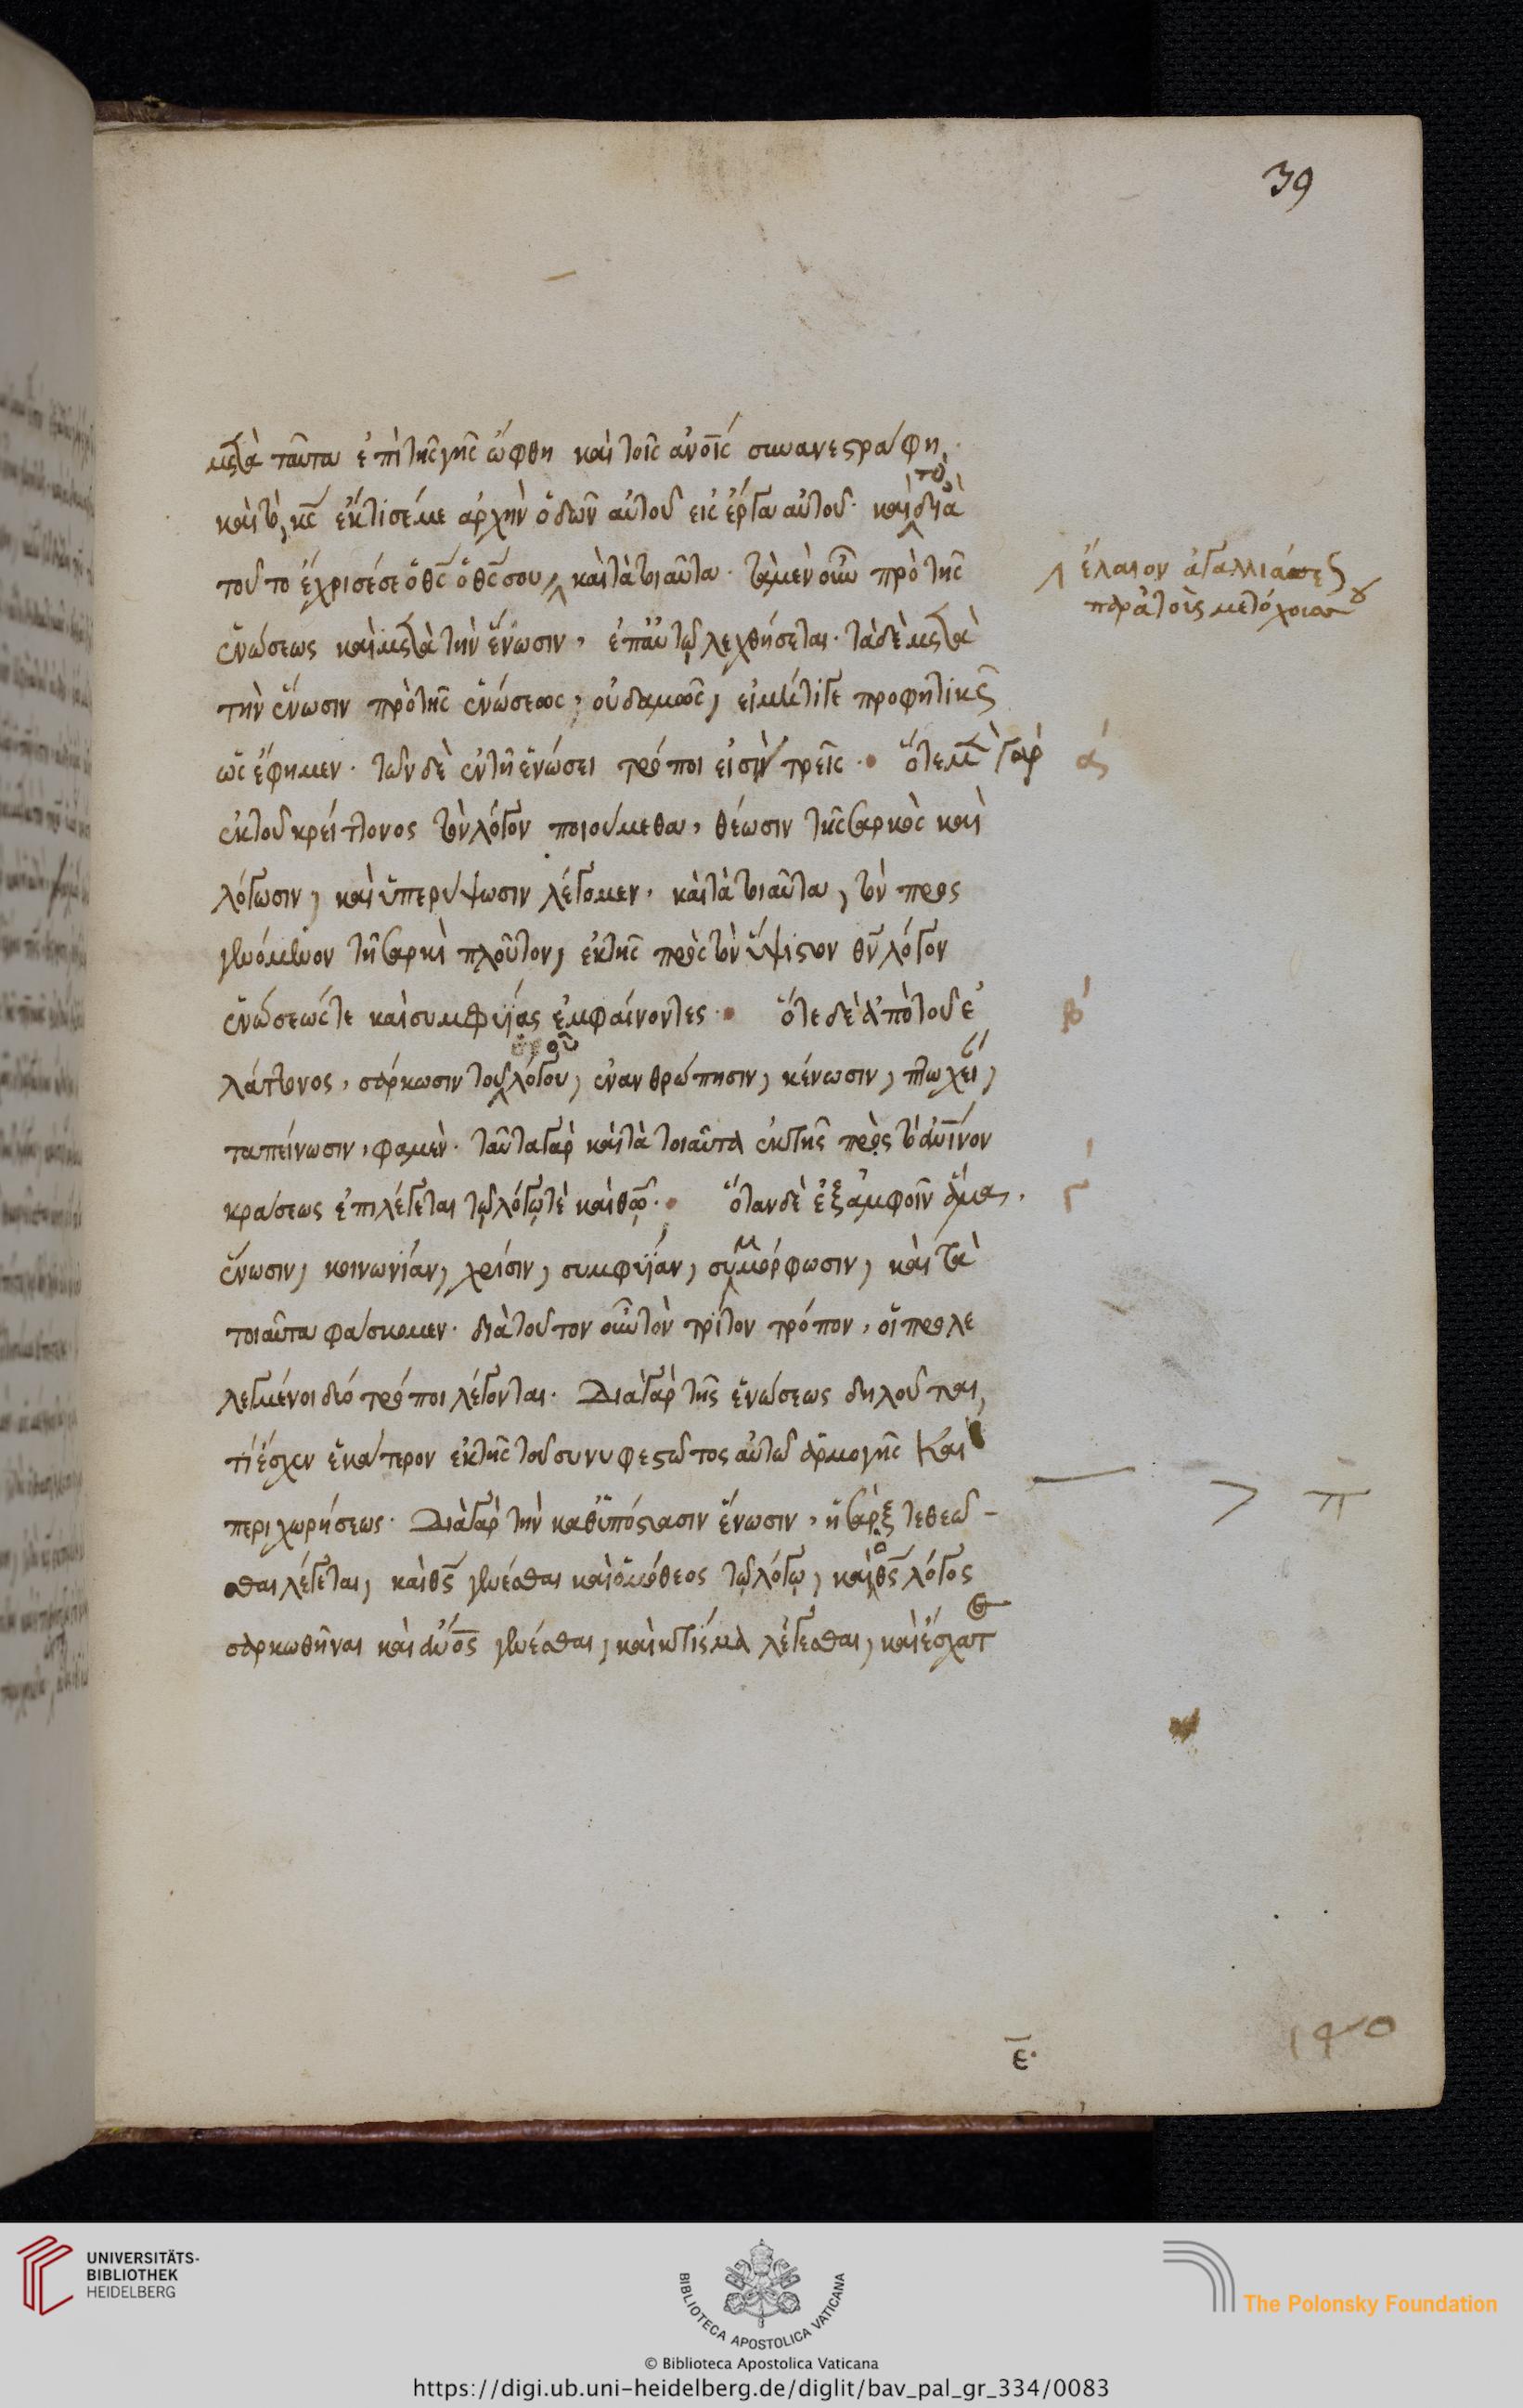 39
μετὰ ταῦτα ἐπὶ τῆς γῆς ὤφθη καὶ τοῖς ἀνοῖς συνανεστράφη·
καὶ τὸ, κς ἔκτισέ με ἀρχὴν ὁδῶν αὐτοῦ εἰς ἔργα αὐτοῦ· καὶ τὸ, διὰ
τοῦτο ἔχρισέ σε ὁ θς ὁ θς σου, καὶ τὰ τοιαῦτα· τὰ μὲν οὖν πρὸ τῆς
ἔλαιον ἀγαλλιάσεως
παρὰ τοὺς μετόχους σου
ἑνώσεως καὶ μετὰ τὴν ἕνωσιν, ἐπ' αὐτῷ λεχθήσεται· τὰ δὲ μετὰ
τὴν ἕνωσιν πρὸ τῆς ἑνώσεως, οὐδαμῶς, εἰ μή τί γε προφητικῶς
ὡς ἔφημεν· τῶν δὲ ἐν τῇ ἑνώσει τρόποι εἰσὶν τρεῖς· ὅτε μὲν γὰρ
α´
ἐκ τοῦ κρείττονος τὸν λόγον ποιούμεθα, θέωσιν τῆς σαρκὸς καὶ
λόγωσιν, καὶ ὑπερύψωσιν λέγομεν, καὶ τὰ τοιαῦτα, τὸν προσ
γενόμενον τῇ σαρκὶ πλοῦτον, ἐκ τῆς πρὸς τὸν ὕψιστον θν λόγον
ἑνώσεώς τε καὶ συμφυΐας ἐμφαίνοντες· ὅτε δὲ ἀπὸ τοῦ ἐ
β´
λάττονος, σάρκωσιν τοῦ θεοῦ λόγου, ἐνανθρώπησιν, κένωσιν, πτωχεί,
ταπείνωσιν, φαμὲν· ταῦτα γὰρ καὶ τὰ τοιαῦτα ἐκ τῆς πρὸς τὸ ἀνινον
κράσεως ἐπιλέγεται τῷ λόγῳ τὲ καὶ θῷ· ὅταν δὲ ἐξ ἀμφοῖν ἅμα,
γ´
ἕνωσιν, κοινωνίαν, χρίσιν, συμφυΐαν, συμμόρφωσιν, καὶ τὰ
τοιαῦτα φάσκομεν· διὰ τοῦτον οὖν τὸν τρίτον τρόπον, οἱ προλε
λεγμένοι δύο τρόποι λέγονται· Διὰ γὰρ τῆς ἑνώσεως δηλοῦται,
τί ἔσχεν ἑκάτερον ἐκ τῆς τοῦ συνυφεστῶτος αὐτῶ ἁρμογῆς καὶ
περιχωρήσεως· Διὰ γὰρ τὴν καθ' ὑπόστασιν ἕνωσιν, ἡ σὰρξ τεθεῶ-
σθαι λέγεται, καὶ θς γενέσθαι καὶ ὁμόθεος τῷ λόγῳ, καὶ ὁ θς λόγος
σαρκωθῆναι καὶ ἀνος γενέσθαι, καὶ κτίσμα λέγεσθαι, καὶ ἔσχατ
ε·
140
UNIVERSITÄTS-
BIBLIOTHEK
HEIDELBERG
BIBLIOTECA APOSTOLICA VATICANA
The Polonsky Foundation
© Biblioteca Apostolica Vaticana
https://digi.ub.uni-heidelberg.de/diglit/bav_pal_gr_334/0083